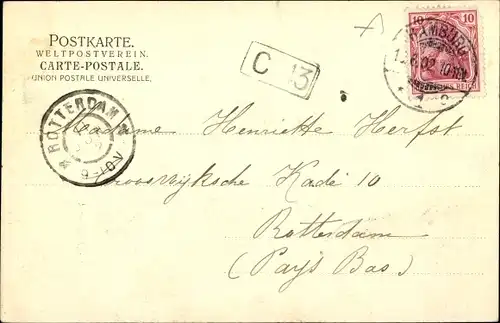 POSTKARTE.
WELTPOSTVEREIN.
CARTE-POSTALE.
UNION POSTALE UNIVERSELLE.
C 13
10 10
REICH
HAMBURG
ROTTERDAM
9-10V
Madame Henriette Herfst
Kade 10
Rotterdam
(Pays Bas)